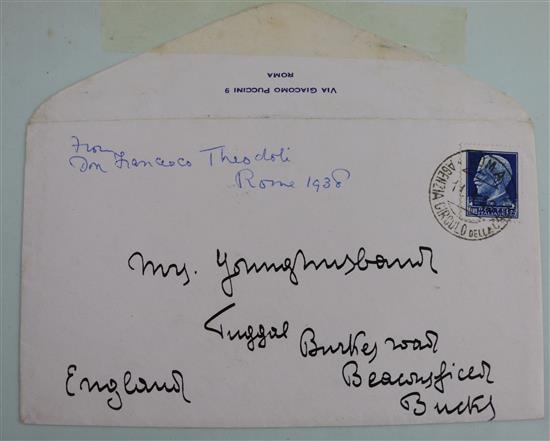 VIA GIACOMO PUCCINI 9
ROMA
From
Don Francesco Theodoli
Rome 1938
ROMA
AGENZIA CIRCOLO DELLA
Mrs. Younghusband
Tuggal
Burkes road
Beaconsfield
Bucks
England